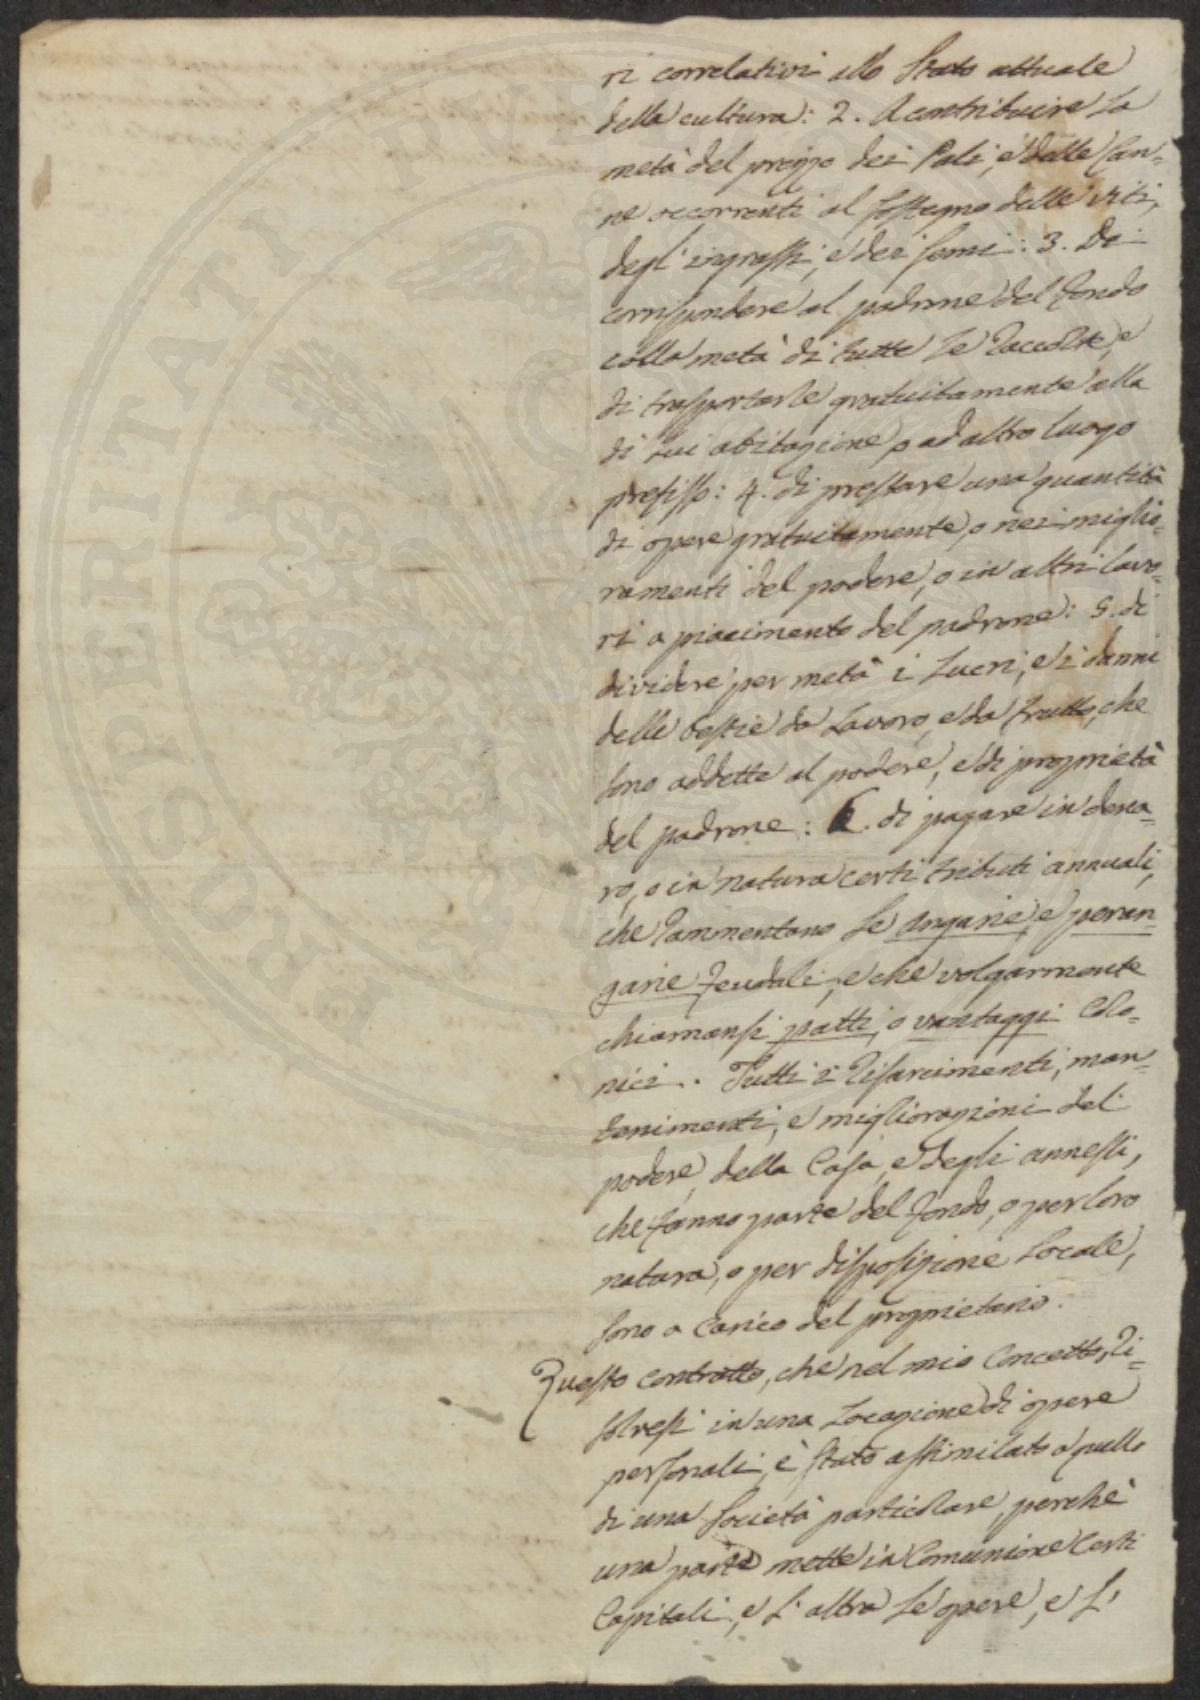 ri correlativi allo Stato attuale
della cultura: 2. A contribuire La
metà del prezzo dei Pali, e delle Can=
ne occorrenti al sostegno delle viti,
degl' ingrassi, e dei semi: 3. Di
corrispondere al padrone del Fondo
colla metà di tutte le raccolte, e
di trasportarle gratuitamente alla
di Lui abitazione, o ad altro Luogo
prefisso: 4. di prestare una quantità
di opere gratuitamente, o nei miglio=
ramenti del podere, o in altri Lavo=
ri a piacimento del padrone: 5. di
dividere per metà i Lucri, e i danni
delle bestie da Lavoro, e da frutto, che
sono addette al podere, e di proprietà
del padrone: 6. di pagare in dena=
ro, o in natura certi tributi annuali,
che rammentano le angarie, e peran=
garie feudali, e che volgarmente
chiamansi patti, o vantaggi Colo=
nici. Tutti i risarcimenti, man=
tenimenti, e migliorazioni del
podere, della Casa, e degli annessi,
che fanno parte del Fondo, o per loro
natura, o per disposizione Locale,
sono a carico del proprietario.
Questo contratto, che nel mio Concetto, ri=
solvesi in una Locazione di opere
personali, è stato assimilato a quello
di una Società particolare, perchè
una parte mette in Comunione Certi
Capitali, e l' altra le opere, e l'
PROSPERITATI PVB